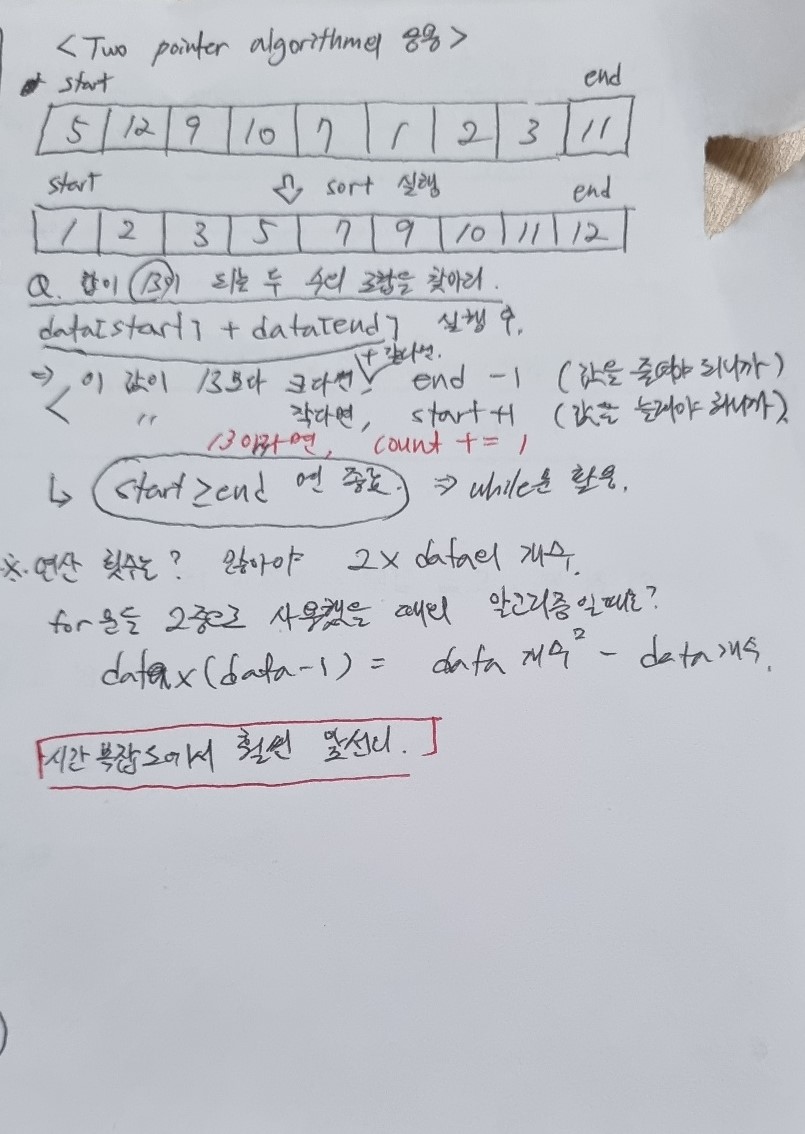 <Two pointer algorithm의 응용>
start end
5 12 9 10 7 1 2 3 11
start ⇩ sort 실행 end
1 2 3 5 7 9 10 11 12
Q. 합이 13이 되는 두 수의 조합을 찾아라.
data[start] + data[end] 실행 후,
+ 같다면.
⇒ 이 값이 13보다 크다면 end -1 (값을 줄여야 되니까)
〃 작다면, start +1 (값을 늘려야 하니까)
13이라면, count += 1
↳ start ≥ end 면 종료. ⇒ while문 활용.
※. 연산 횟수는? 많아야 2 x data의 개수.
for문을 2중으로 사용했을 때의 알고리즘일때는?
data x (data-1) = data 개수² - data 개수.
시간 복잡도에서 훨씬 앞선다.